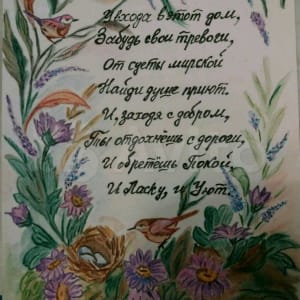 И входя в этот дом,
Забудь свои тревоги,
От суеты мирской
Найди душе приют.
И, заходя с добром,
Ты отдохнёшь с дороги,
И обретёшь Покой,
И Ласку, и Уют.